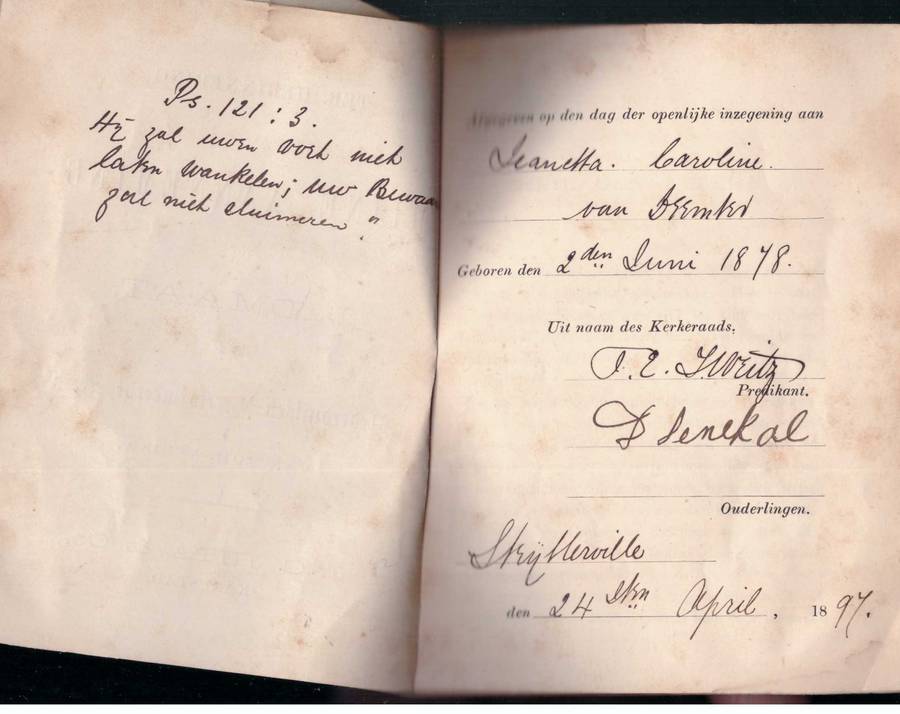 Ps. 121 : 3.
Hy zal uwen voet niet
laten wankelen; uw Bewaar
zal niet sluimeren "
Afgegeven op den dag der openlijke inzegening aan
Jeanetta. Caroline.
van
Geboren den 2den Juni 1878.
Uit naam des Kerkeraads,
Predikant.
D Senekal
Ouderlingen.
Steijtlerville
den 24 sten April, 1897.